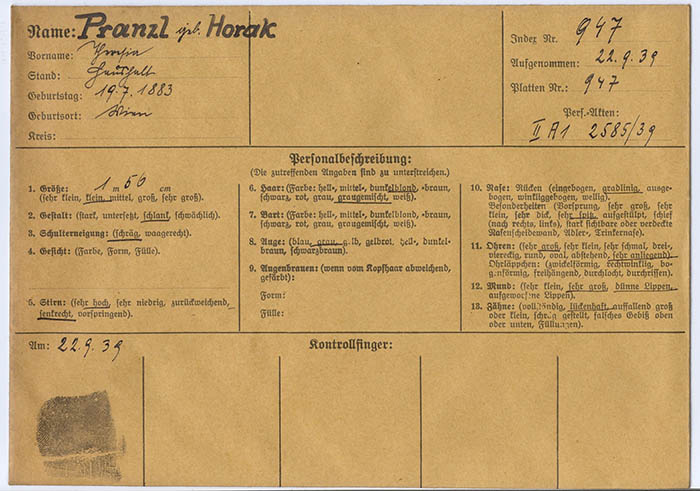 Name: Pranzl geb. Horak
Vorname: Theresia
Stand: Haushalt
Geburtstag: 19.7.1883
Geburtsort: Wien
Kreis:
Index Nr. 947
Aufgenommen: 22.9.39
Platten Nr.: 947
Pers.-Akten:
II A1 2585/39
Personalbeschreibung:
(Die zutreffenden Angaben sind zu unterstreichen.)
1. Größe: 1 m 50 cm
(sehr klein, klein, mittel, groß, sehr groß).
2. Gestalt: (stark, untersetzt, schlank, schwächlich).
3. Schulterneigung: (schräg, waagerecht).
4. Gesicht: (Farbe, Form, Fülle).
5. Stirn: (sehr hoch, sehr niedrig, zurückweichend,
senkrecht, vorspringend).
6. Haar: (Farbe: hell-, mittel-, dunkelblond, -braun,
schwarz, rot, grau, graugemischt, weiß).
7. Bart: (Farbe: hell-, mittel-, dunkelblond, -braun,
schwarz, rot, grau, graugemischt, weiß).
8. Auge: (blau, grau, gelb, gelbrot, hell-, dunkel-
braun, schwarzbraun).
9. Augenbrauen: (wenn vom Kopfhaar abweichend,
gefärbt):
Form:
Fülle:
10. Nase: Rücken (eingebogen, gradlinig, ausge-
bogen, winkliggebogen, wellig).
Besonderheiten (Vorsprung, sehr groß, sehr
klein, sehr dick, sehr spitz, aufgestülpt, schief
(nach rechts, links), stark sichtbare oder verdeckte
Nasenscheidewand, Adler-, Trinkernase).
11. Ohren: (sehr groß, sehr klein, sehr schmal, drei-
viereckig, rund, oval, abstehend, sehr anliegend).
Ohrläppchen: (zwickelförmig, rechtwinklig, bo-
genförmig, freihängend, durchlocht, durchrissen).
12. Mund: (sehr klein, sehr groß, dünne Lippen,
aufgeworfene Lippen).
13. Zähne: (vollständig, lückenhaft, auffallend groß
oder klein, schräg gestellt, falsches Gebiß oben
oder unten, Füllungen).
Am: 22.9.39
Kontrollfinger: